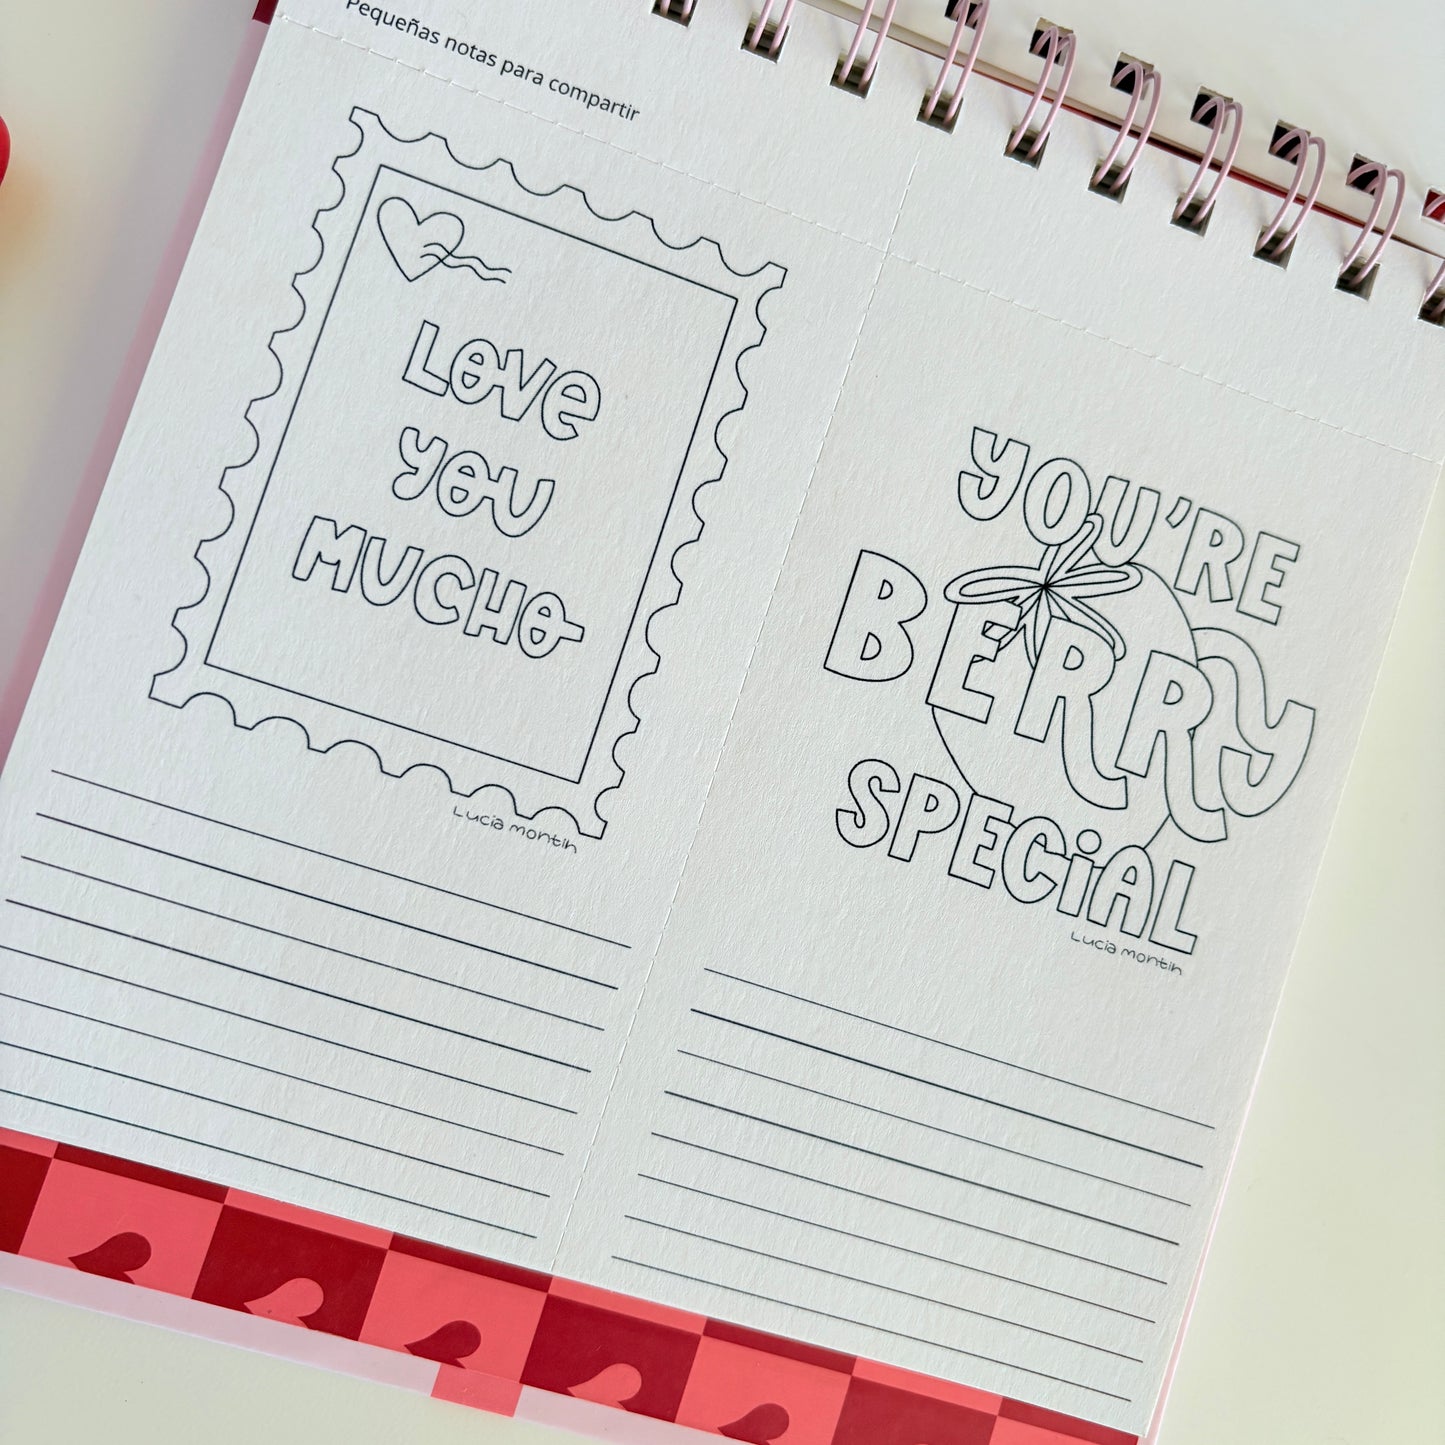 Pequeñas notas para compartir
LOVE
YOU
MUCHO
Lucia montih
YOU'RE
BERRY
SPECiAL
Lucia montih